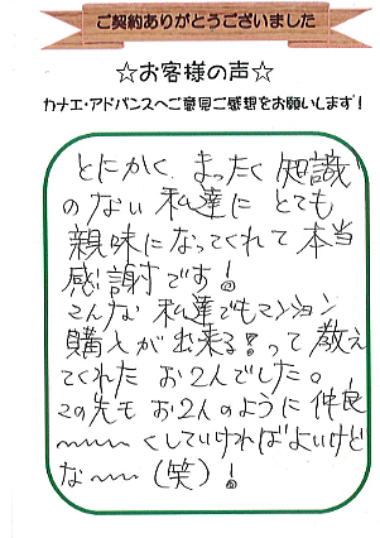 ご契約ありがとうございました
☆お客様の声☆
カナエ・アドバンスへご意見ご感想をお願いします！
とにかく、まったく知識
のない私達に とても
親味になってくれて本当
感謝です！
こんな私達でもマンション
購入が出来る！って教え
てくれた お2人でした。
この先も お2人のように仲良
〜〜〜くしていければよいけど
な〜〜（笑）！